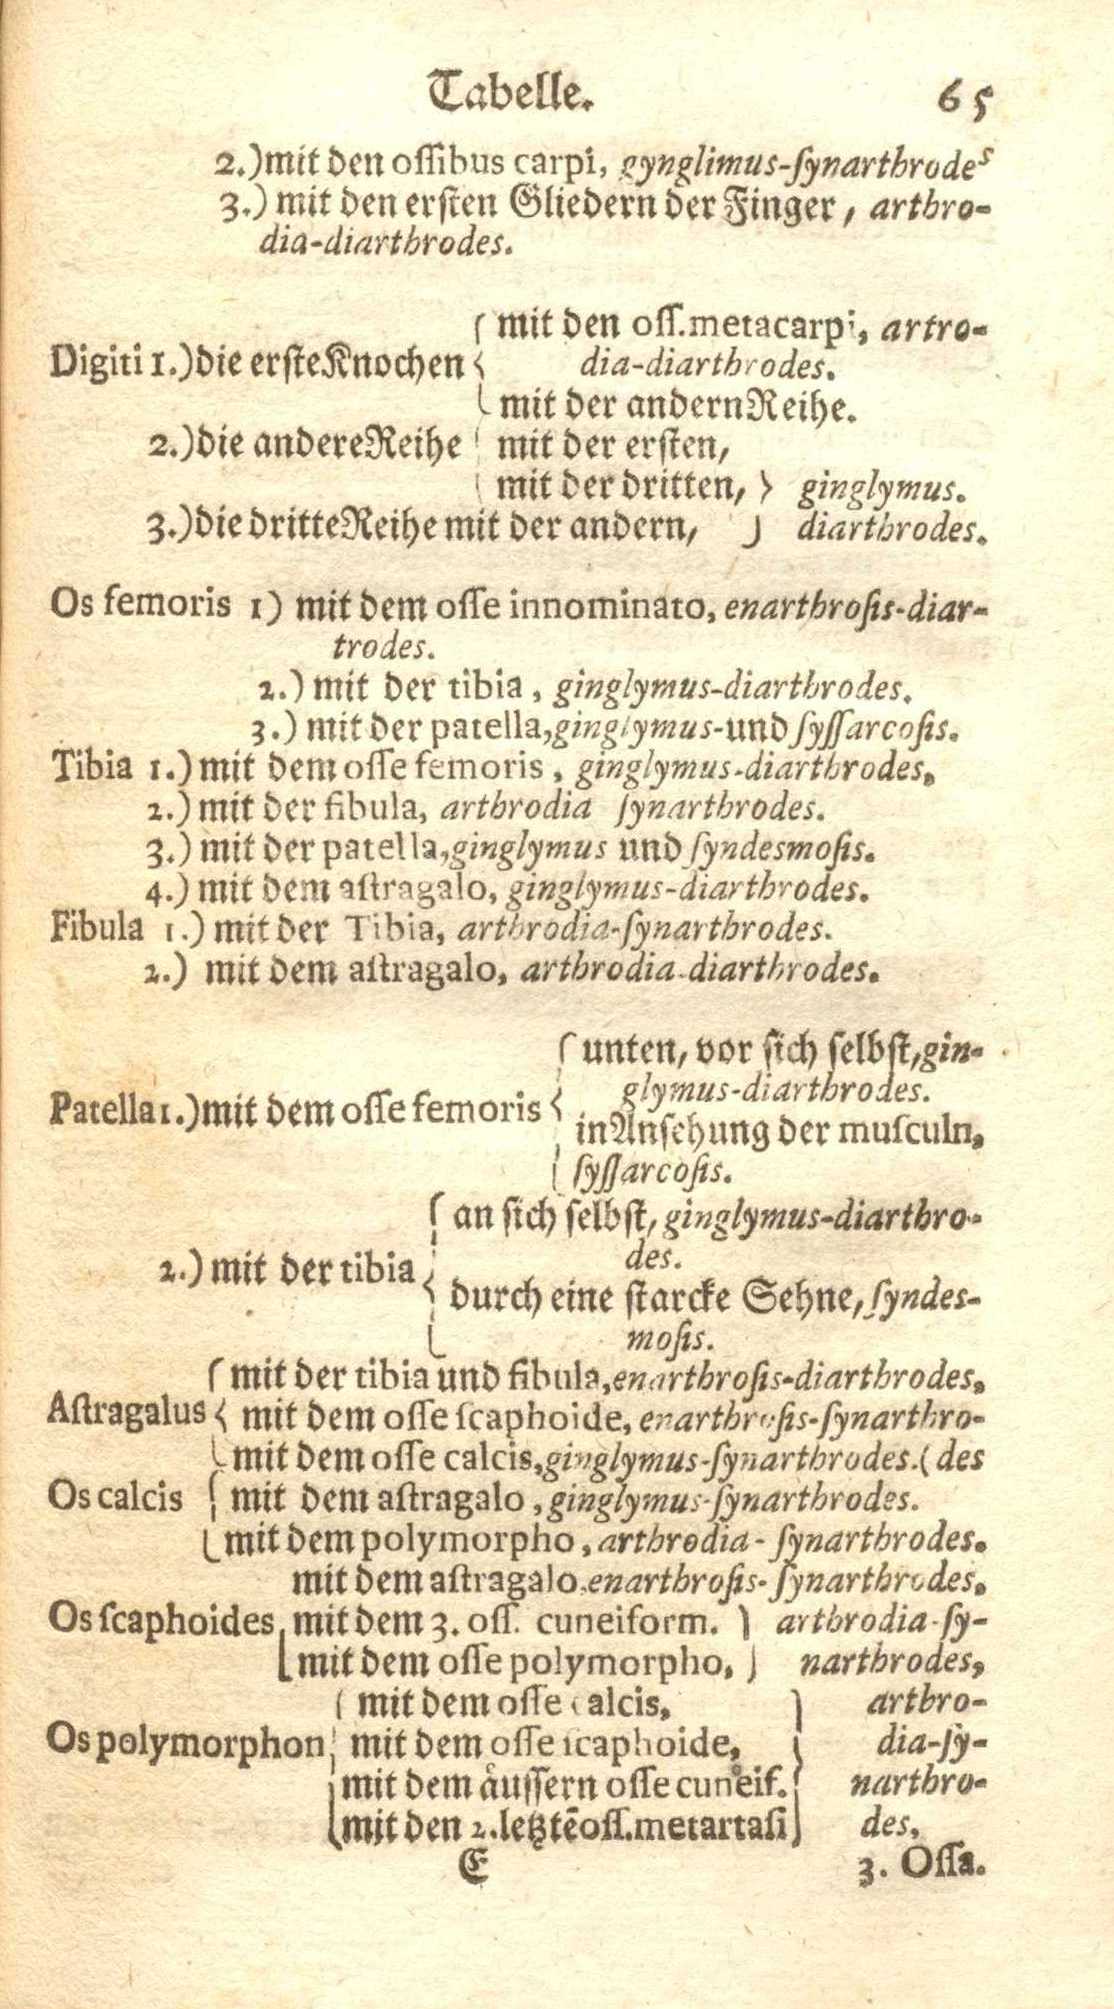 Tabelle. 65
2.) mit den oſſibus carpi, gynglimus-ſynarthrodes
3.) mit den erſten Gliedern der Finger, arthro-
dia-diarthrodes.
mit den oſſ. metacarpi, artro-
Digiti 1.) die erſte Knochen dia-diarthrodes.
mit der andern Reihe.
2.) die andere Reihe mit der erſten,
mit der dritten, ginglymus.
3.) die dritte Reihe mit der andern, diarthrodes.
Os femoris 1) mit dem oſſe innominato, enarthroſis-diar-
trodes.
2.) mit der tibia, ginglymus-diarthrodes.
3.) mit der patella, ginglymus- und ſyſſarcoſis.
Tibia 1.) mit dem oſſe femoris, ginglymus-diarthrodes.
2.) mit der fibula, arthrodia ſynarthrodes.
3.) mit der patella, ginglymus und ſyndesmoſis.
4.) mit dem aſtragalo, ginglymus-diarthrodes.
Fibula 1.) mit der Tibia, arthrodia-ſynarthrodes.
2.) mit dem aſtragalo, arthrodia-diarthrodes.
unten, vor ſich ſelbſt, gin-
glymus-diarthrodes.
Patella 1.) mit dem oſſe femoris
in Anſehung der muſculn,
ſyſſarcoſis.
an ſich ſelbſt, ginglymus-diarthro-
des.
2.) mit der tibia
durch eine ſtarcke Sehne, ſyndes-
moſis.
mit der tibia und fibula, enarthroſis-diarthrodes,
Aſtragalus mit dem oſſe ſcaphoide, enarthroſis-ſynarthro-
mit dem oſſe calcis, ginglymus-ſynarthrodes. (des
Os calcis mit dem aſtragalo, ginglymus-ſynarthrodes.
mit dem polymorpho, arthrodia-ſynarthrodes.
mit dem aſtragalo, enarthroſis-ſynarthrodes.
Os ſcaphoides mit dem 3. oſſ. cuneiform. arthrodia-ſy-
mit dem oſſe polymorpho, narthrodes,
mit dem oſſe calcis, arthro-
Os polymorphon mit dem oſſe ſcaphoide, dia-ſy-
mit dem aͤuſſern oſſe cuneif. narthro-
mit den 2. letztē oſſ. metartaſi des,
E 3. Oſſa.